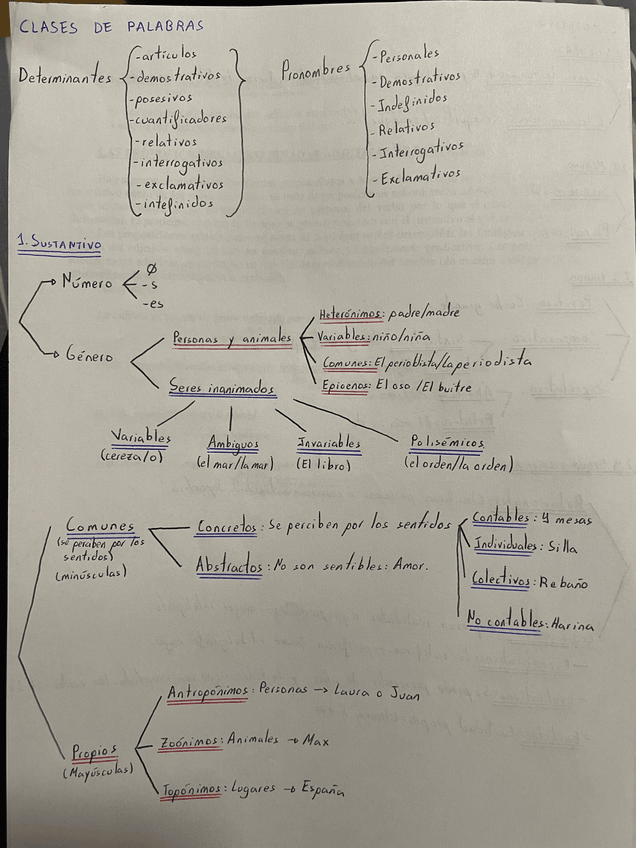 CLASES DE PALABRAS
Determinantes
-artículos
-demostrativos
-posesivos
-cuantificadores
-relativos
-interrogativos
-exclamativos
-intefinidos
Pronombres
-Personales
-Demostrativos
-Indefinidos
-Relativos
-Interrogativos
-Exclamativos
1. SUSTANTIVO
Número
Ø
-s
-es
Género
Personas y animales
Heterónimos: padre/madre
Variables: niño/niña
Comunes: El periodista/La periodista
Epicenos: El oso /El buitre
Seres inanimados
Variables
(cereza/o)
Ambiguos
(el mar/la mar)
Invariables
(El libro)
Polisémicos
(el orden/la orden)
Comunes
(se perciben por los
sentidos)
(minúsculas)
Concretos: Se perciben por los sentidos
Contables: 4 mesas
Individuales: Silla
Colectivos: Rebaño
No contables: Harina
Abstractos: No son sentibles: Amor.
Propios
(Mayúsculas)
Antropónimos: Personas → Laura o Juan
Zoónimos: Animales → Max
Topónimos: Lugares → España